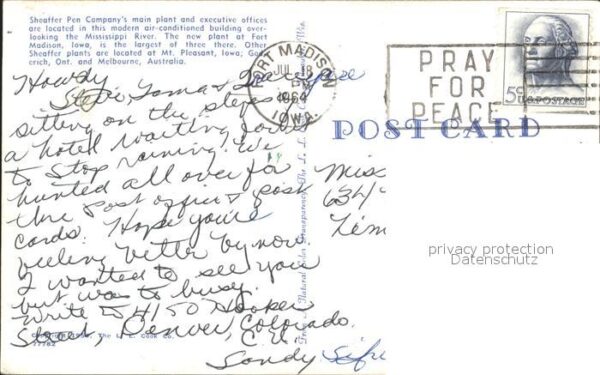 Sheaffer Pen Company's main plant and executive offices
are located in this modern air-conditioned building over-
looking the Mississippi River. The new plant at Fort
Madison, Iowa, is the largest of three there. Other
Sheaffer plants are located at Mt. Pleasant, Iowa; God-
erich, Ont. and Melbourne, Australia.
FORT MADISON
JUL 18
PM
1964
IOWA
2
PRAY
FOR
PEACE
5¢ U.S. POSTAGE
POST CARD
Howdy
sitting on the steps
a hotel waiting for it
to stop raining. We
hunted all over for
the post office & post
cards. Hope you're
feeling better by now
I wanted to see you
but was to busy.
Write to 4150 Hooker
Street, Denver, Colorado.
C.U.
Sandy
Miss
634
privacy protection
Datenschutz
77762